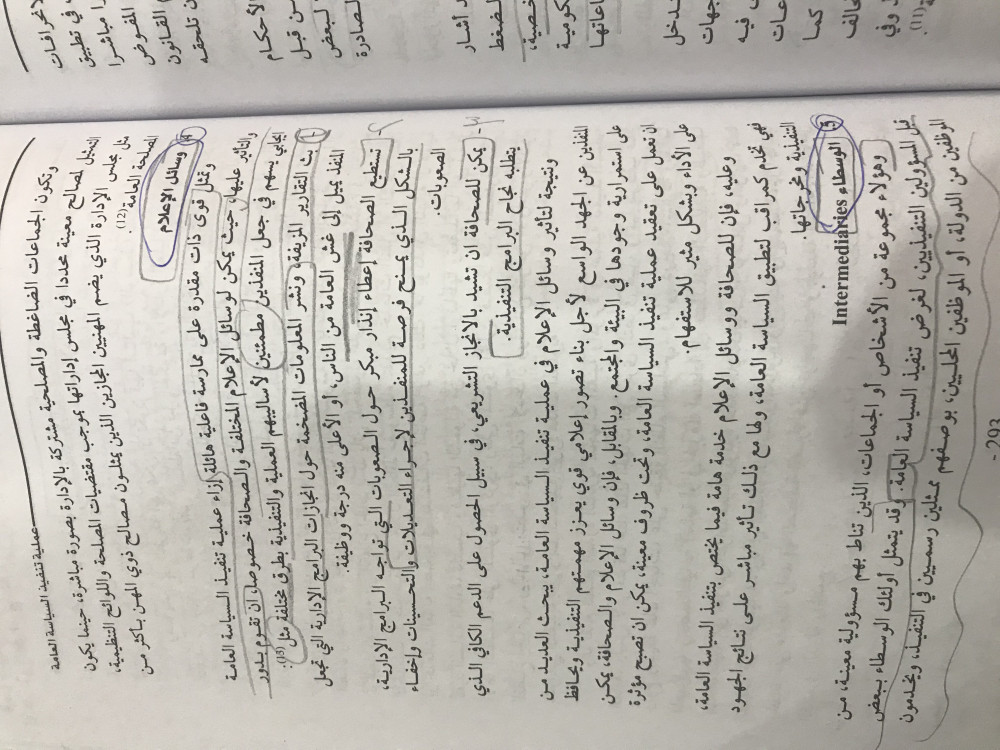 عملية تنفيذ السياسة العامة
وتكون الجماعات الضاغطة والمصلحية مشتركة بالإدارة بصورة مباشرة، حينما يكون
التمثيل لصالح معينة محددا في مجلس إداراتها بموجب مقتضيات المصلحة واللوائح التنظيمية،
مثل مجلس الإدارة الذي يضم المهنيين المجازين الذين يمثلون مصالح ذوي المهن بأكثر من
المصلحة العامة (12).
4 وسائل الإعلام
وتمثل قوى ذات مقدرة على ممارسة فاعلية هائلة إزاء عملية تنفيذ السياسة العامة
والتأثير عليها، حيث يمكن لوسائل الإعلام المختلفة والصحافة خصوصا، ان تقوم بدور
ايجابي يسهم في جعل المنفذين مطمئنين لأساليبهم العملية والتنفيذية بطرق مختلفة مثل (13):
1- بث التقارير المزيفة، ونشر المعلومات المضخمة حول انجازات البرامج الإدارية التي تجعل
المنفذ يميل إلى غش العامة من الناس، أو الأعلى منه درجة ووظيفة.
2- تستطيع الصحافة إعطاء إنذار مبكر حول الصعوبات التي تواجه البرامج الإدارية،
بالشكل الذي يمنح فرصة للمنفذين لإجراء التعديلات والتحسينات وإخفاء
الصعوبات.
3- يمكن للصحافة ان تشيد بالانجاز التشريعي، في سبيل الحصول على الدعم الكافي الذي
يتطلبه نجاح البرامج التنفيذية.
ونتيجة لتأثير وسائل الإعلام في عملية تنفيذ السياسة العامة، يبحث العديد من
المنفذين عن الجهد الواسع لأجل بناء تصور إعلامي قوي يعزز مهمتهم التنفيذية ويحافظ
على استمرارية وجودها في البيئة والمجتمع. وبالمقابل، فإن وسائل الإعلام والصحافة، يمكن
ان تعمل على تعقيد عملية تنفيذ السياسة العامة، وتحت ظروف معينة، يمكن ان تصبح مؤثرة
على الأداء وبشكل مثير للاستفهام.
وعليه، فإن للصحافة ووسائل الإعلام خدمة هامة فيما يختص بتنفيذ السياسة العامة،
فهي تخدم كمراقب لتطبيق السياسة العامة، ولها مع ذلك تأثير مباشر على نتائج الجهود
التنفيذية ومخرجاتها.
5 الوسطاء Intermediaries
وهؤلاء مجموعة من الأشخاص أو الجماعات، الذين تناط بهم مسؤولية معينة، من
قبل المسؤولين التنفيذيين، لغرض تنفيذ السياسة العامة. وقد يتمثل أولئك الوسطاء ببعض
الموظفين من الدولة، أو الموظفين المحليين، بوصفهم ممثلين رسميين في التنفيذ، ويخدمون
- 293